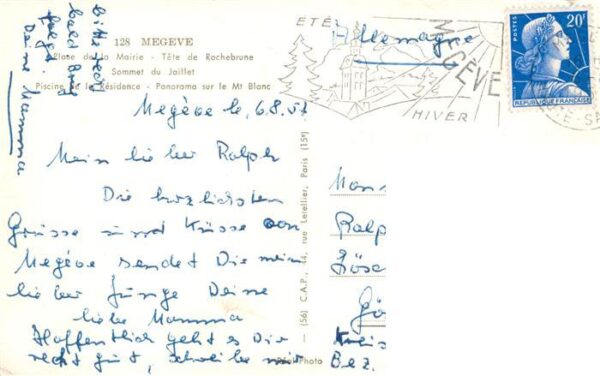 128 MEGEVE
Place de la Mairie - Tête de Rochebrune
Sommet du Jaillet
Piscine de la Résidence - Panorama sur le Mt Blanc
ÉTÉ
MEGÈVE
HIVER
Allemagne
POSTES
20F
REPUBLIQUE FRANÇAISE
Megève le, 6.8.57
Mein lieber Ralph
Die herzlichsten
Grüsse und Küsse von
Megève sendet Dir mein
lieber Junge Deine
liebe Mamma
Hoffentlich geht es Dir
recht gut, schreibe mir
bitte
bald Brief
folgt.
Deine Mamma
(56) C.A.P., 44, rue Letellier, Paris (15e)
Photo
Mon
Ralp
Göse
Gö
Kreis
Bez.